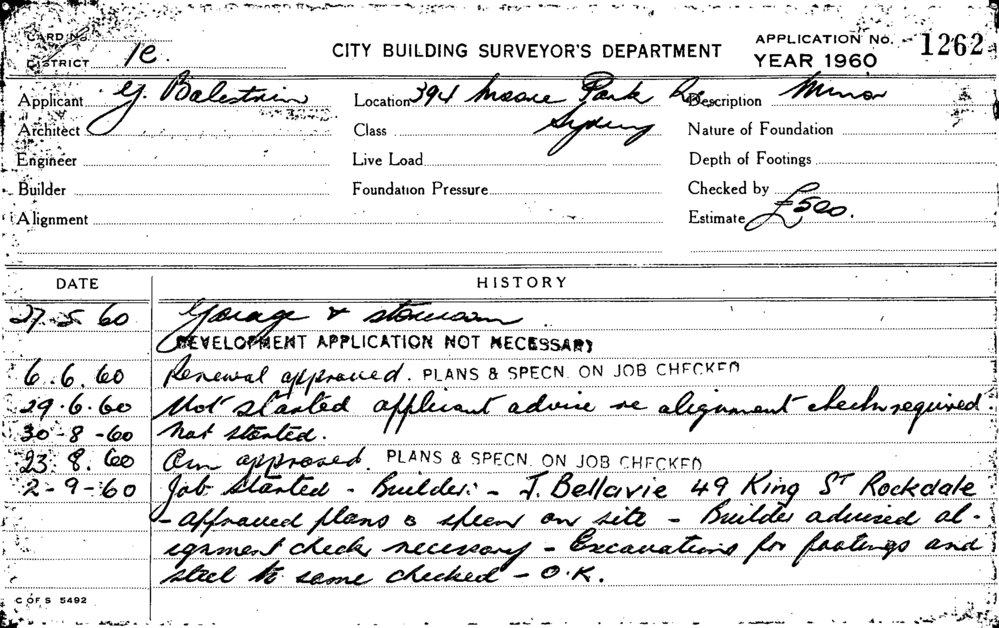 CARD No.
DISTRICT 1C.
CITY BUILDING SURVEYOR'S DEPARTMENT
APPLICATION No. 1262
YEAR 1960
Applicant G. Balestrin Location 394 Moore Park Rd Description Minor
Architect Class Sydney Nature of Foundation
Engineer Live Load Depth of Footings
Builder Foundation Pressure Checked by
Alignment Estimate £500.
DATE HISTORY
27.5.60 Garage & storeroom
DEVELOPMENT APPLICATION NOT NECESSARY
6.6.60 Renewal approved. PLANS & SPECN. ON JOB CHECKED
29.6.60 Not started applicant advise re alignment check required.
30-8-60 Not started.
23.8.60 approved. PLANS & SPECN. ON JOB CHECKED
2-9-60 Job Started - Builder: - J. Bellavie 49 King ST Rockdale
- approved plans & specn on site - Builder advised al-
ignment check necessary - Excavations for footings and
steel to same checked - O.K.
C OF S 5492